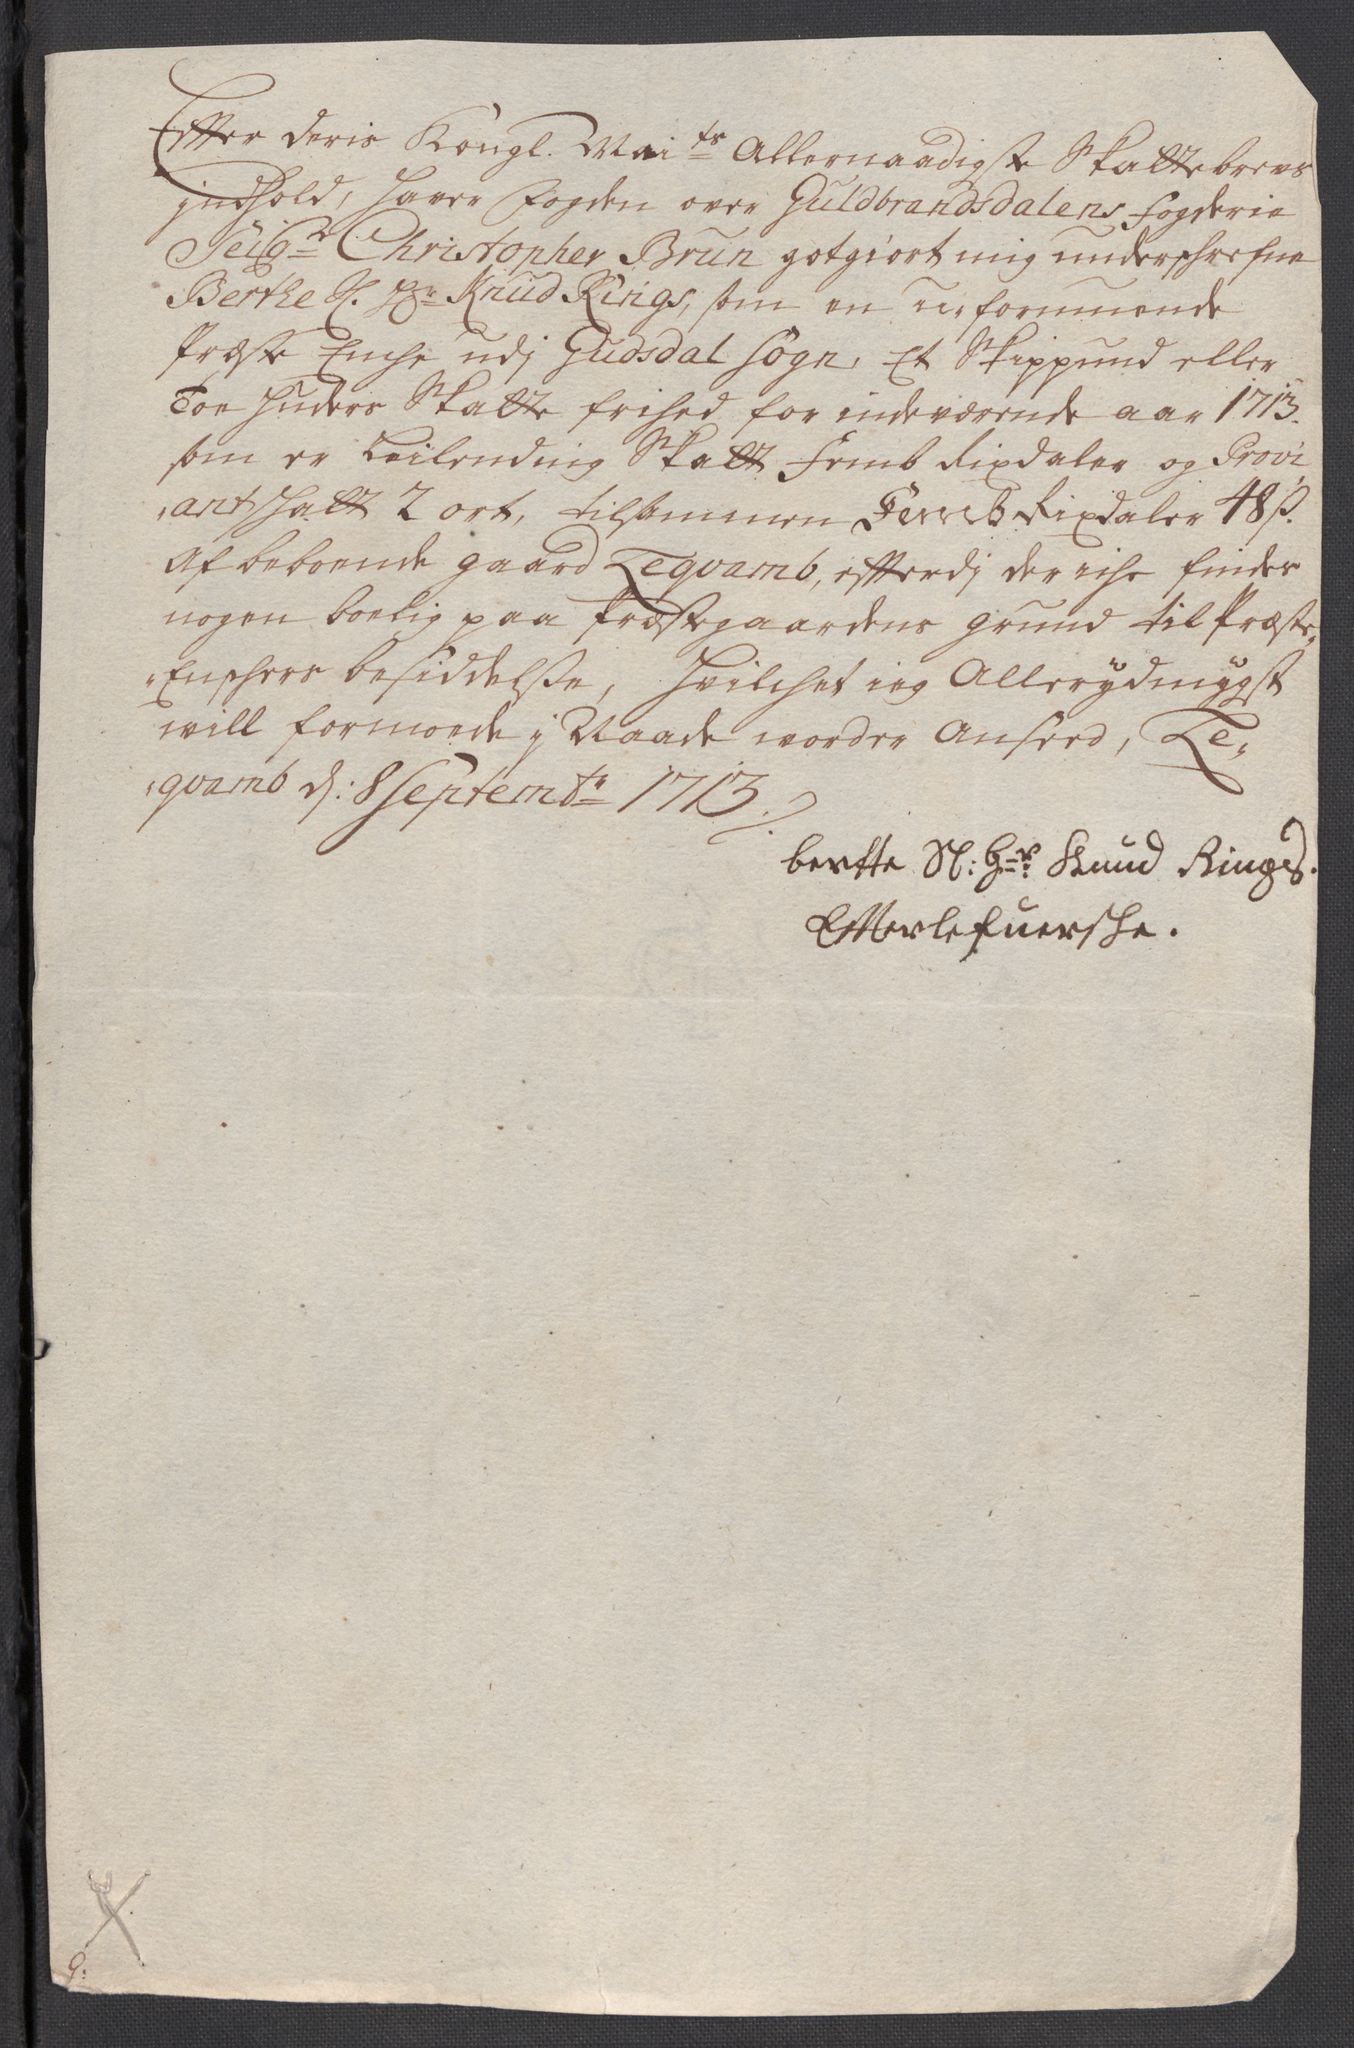 Effter deris Kongl. Mai:ts Allernaadigste Skattebrevs
jndhold, haver Fogden over Guldbrandsdalens fogderie
Seig:r Christopher Brun gotgiort mig underschrefne
Berthe S. Hr: Knud Rings, som en uformuende
Præste Enche udj Gudsdal Sogn, Et Skippund eller
Toe huders Skatte frihed for indeværende aar 1713.
som er Leilending Skatt Femb Rixdaler og Provi
,ant skatt 2 ort, tilsammen Femb Rixdaler 48 ß.
Af beboende gaard Teqvamb, efterdj der iche findes
nogen boelig paa Præstegaardens grund til Præste,,
,,Enchers besiddelse, hvilchet ieg Allerydmygst
will formoede j Naade worder Anseed, Te,,
,,qvamb d: 8 Septembr: 1713.
bertte Sl: Hr: Knud Rings.
Efterlefuerske.
9: